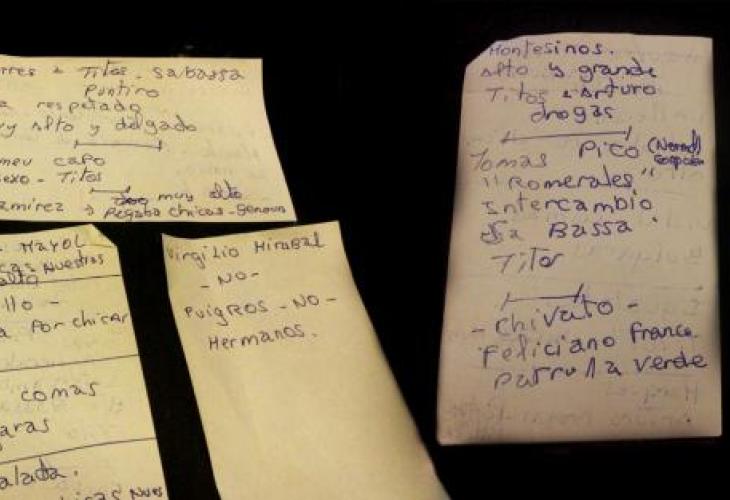 rres & Titos. Sa bassa
Puntiro
a respetado
uy Alto y delgado
meu capo
sexo - Titos
muy alto
amirez → Pegaba chicas - Genova
- MAYOL
cas Nuestras
alto
llo -
a Por chicar
comas
aras
alada.
Virgilio Mirabal
- NO -
PuigRos - NO -
Hermanos.
Montesinos.
Alto y grande
Titos & Arturo
drogas
Tomas Pico
"Romerales"
Intercambio
Sa Bassa
Titos
- Chivato -
Feliciano France
Patrulla verde